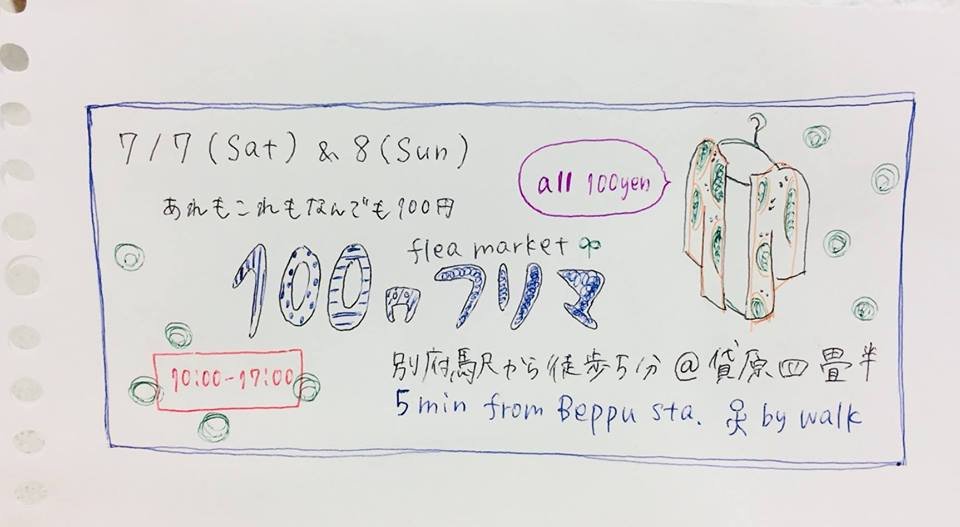 7/7 (Sat) & 8 (Sun)
all 100yen
あれもこれもなんでも100円
flea market
100円フリマ
10:00-17:00
別府駅から徒歩5分 @貸原四畳半
5 min from Beppu sta. by walk